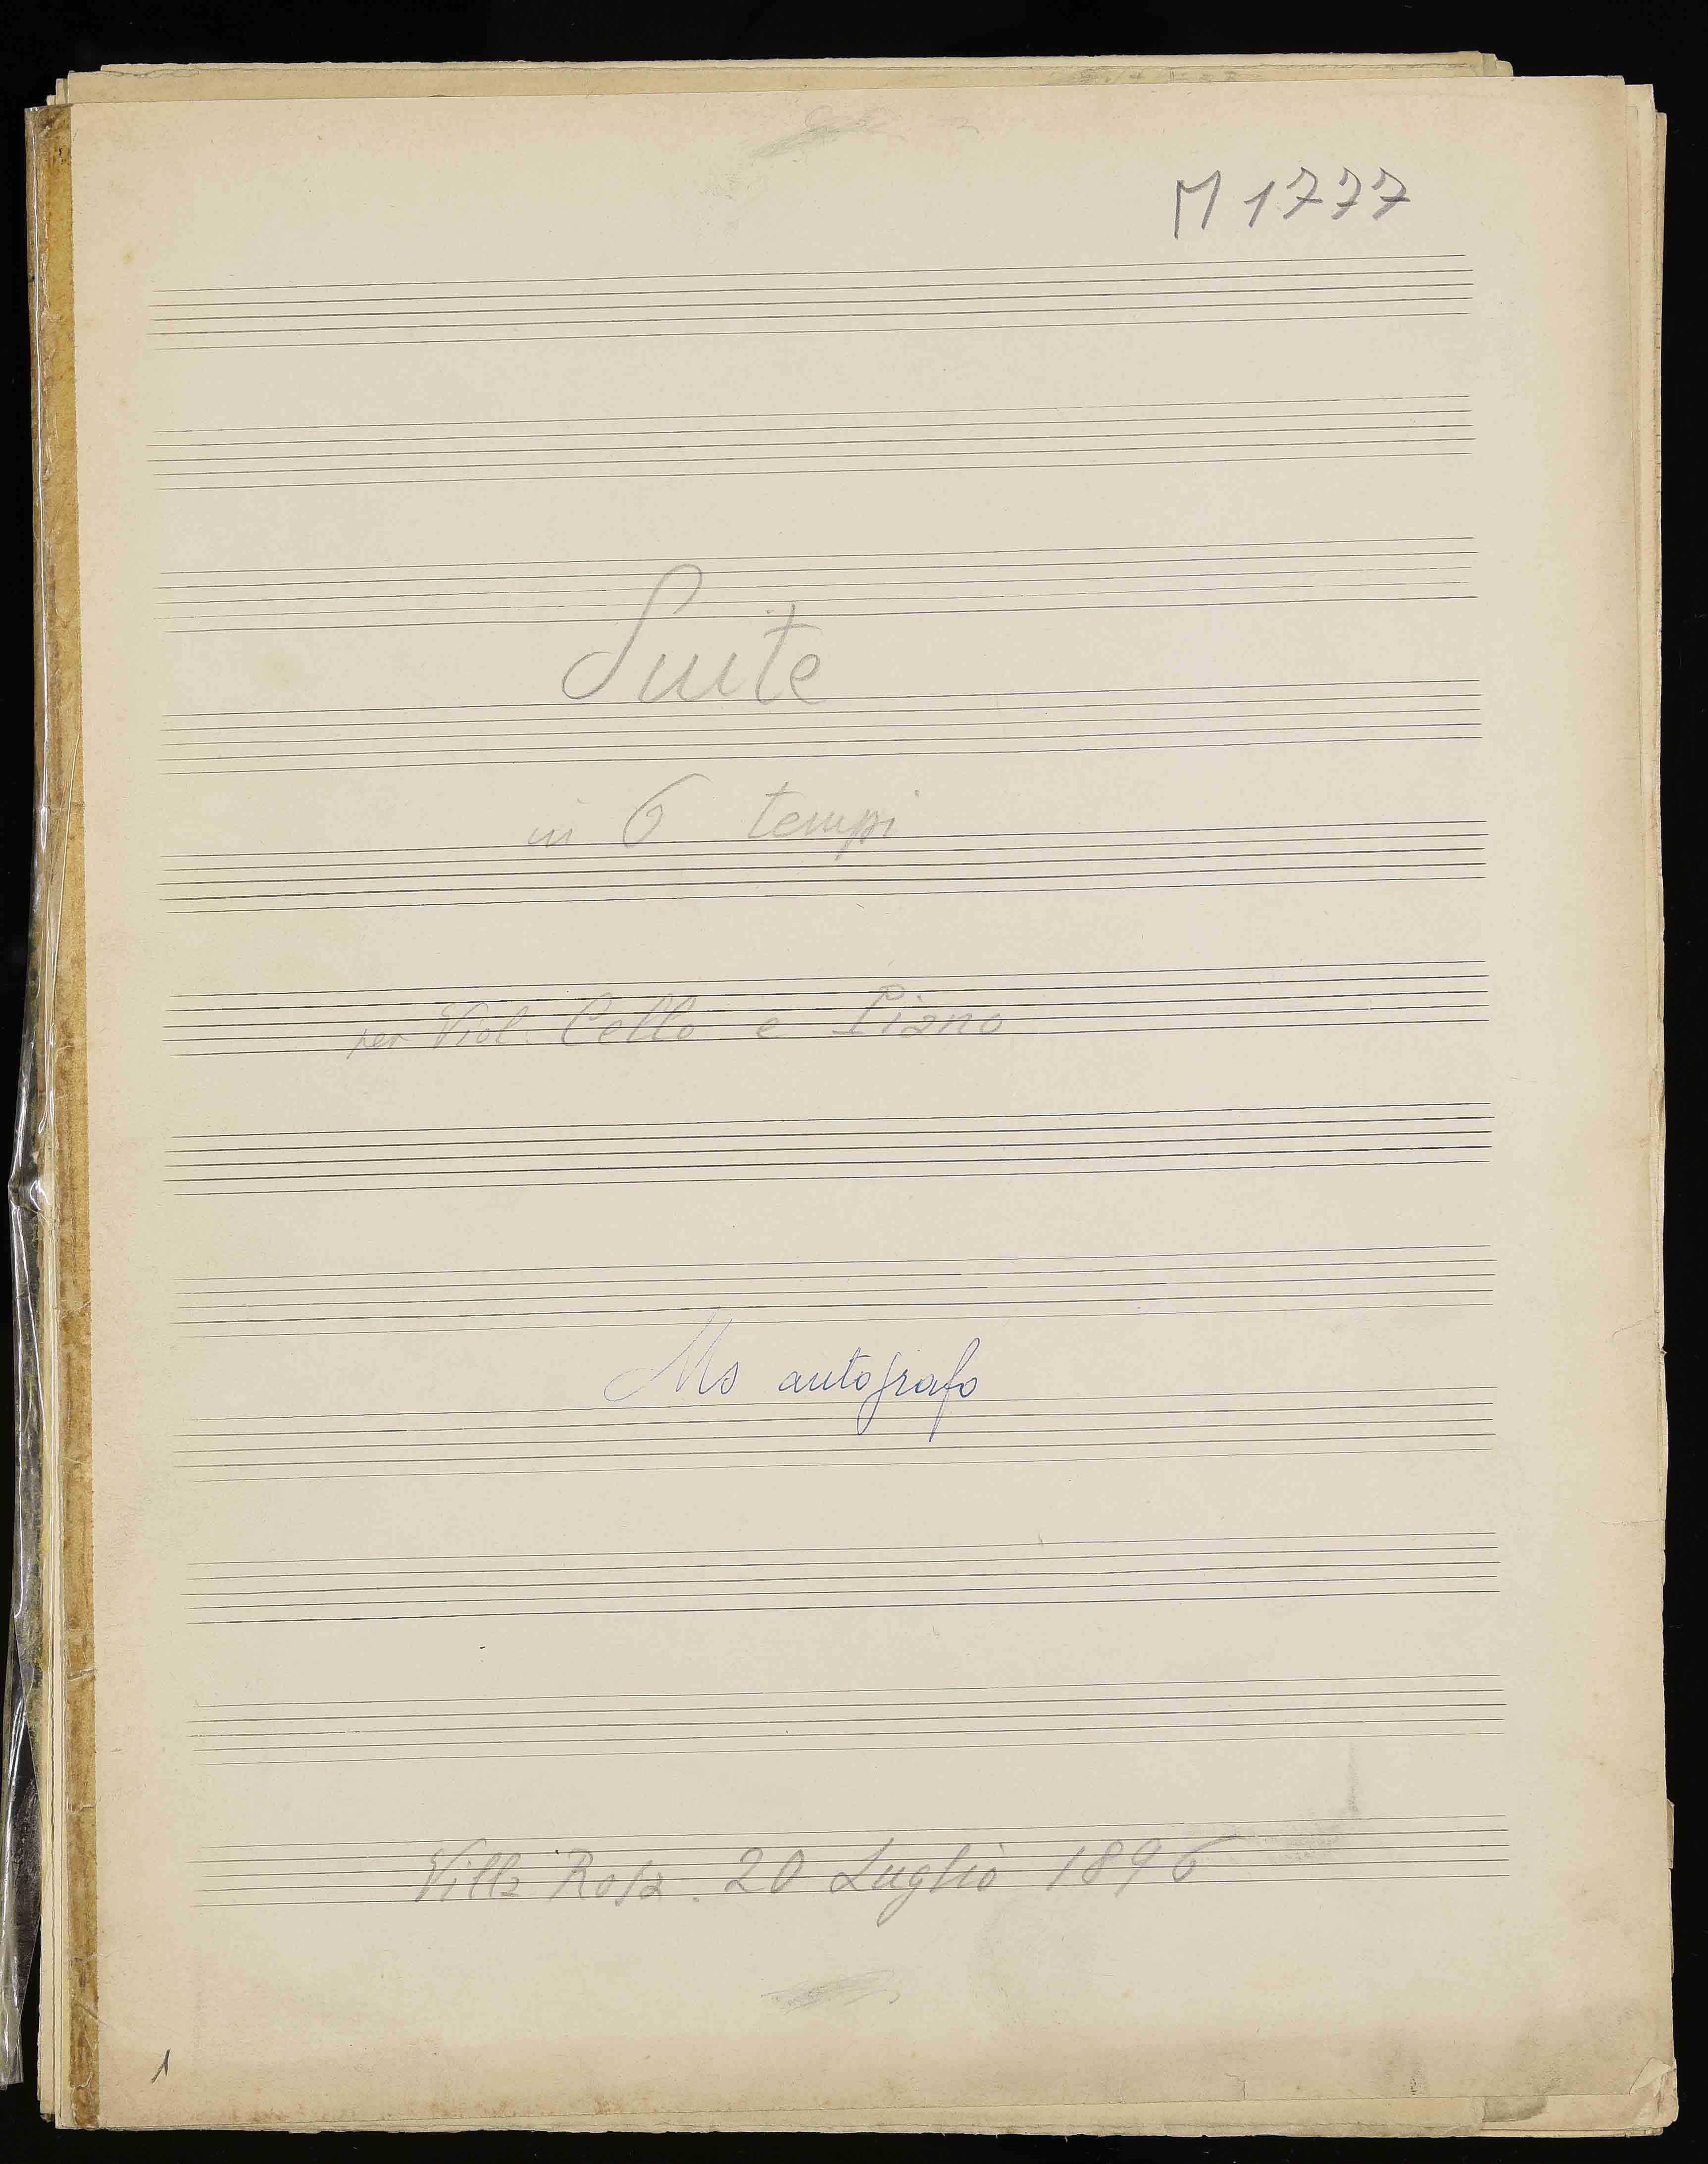 M 1777
Suite
in 6 tempi
per Viol. Cello e Piano
Ms autografo
Villa Rosa. 20 Luglio 1896
1